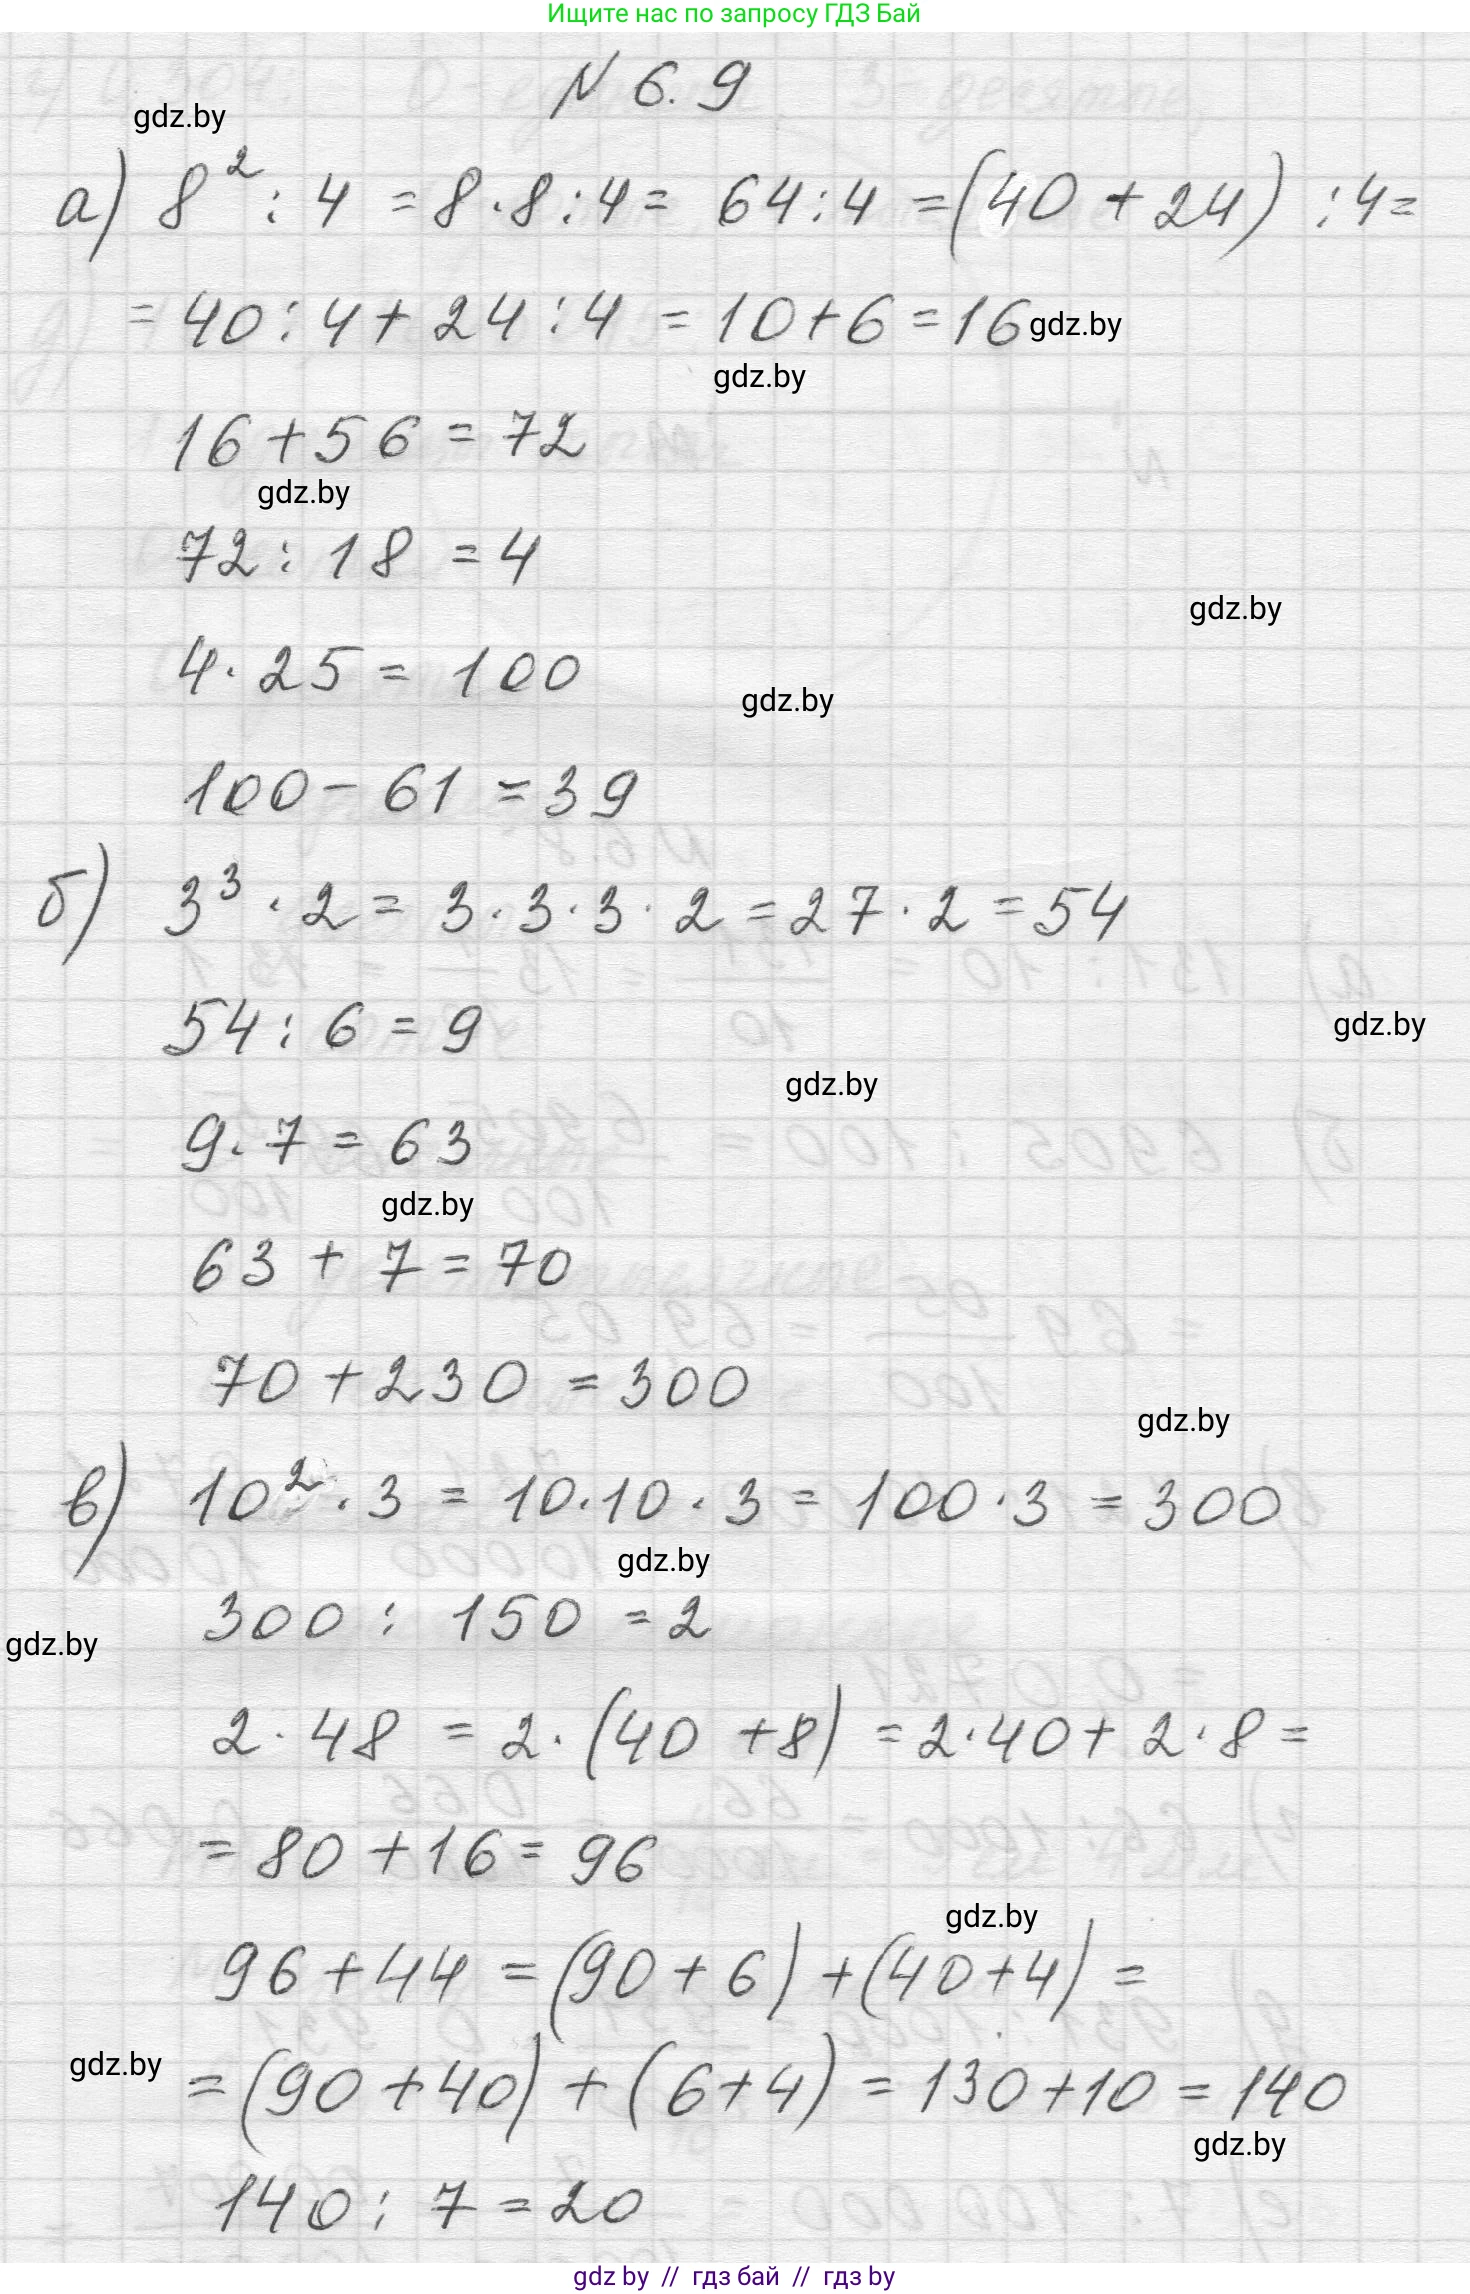 Ищите нас по запросу ГДЗ Бай
N 6.9
gdz.by
а) 8² : 4 = 8·8:4 = 64:4 = (40 + 24) :4=
= 40:4+24:4 = 10+6=16 gdz.by
gdz.by
16+56 = 72
gdz.by
72 : 18 = 4
gdz.by
4·25 = 100
gdz.by
100-61 = 39
б) 3³ · 2 = 3·3·3·2 = 27·2 = 54
54 : 6 = 9
gdz.by
gdz.by
9·7 = 63
gdz.by
63 + 7 = 70
70 + 230 = 300
gdz.by
в) 10² · 3 = 10·10·3 = 100·3 = 300
gdz.by
300 : 150 = 2
gdz.by
2·48 = 2·(40 +8) = 2·40+2·8=
= 80+16= 96
gdz.by
96+44 = (90+6)+(40+4) =
gdz.by = (90+40)+(6+4) = 130+10 = 140
gdz.by
140 : 7 = 20
gdz by // гдз бай // гдз by